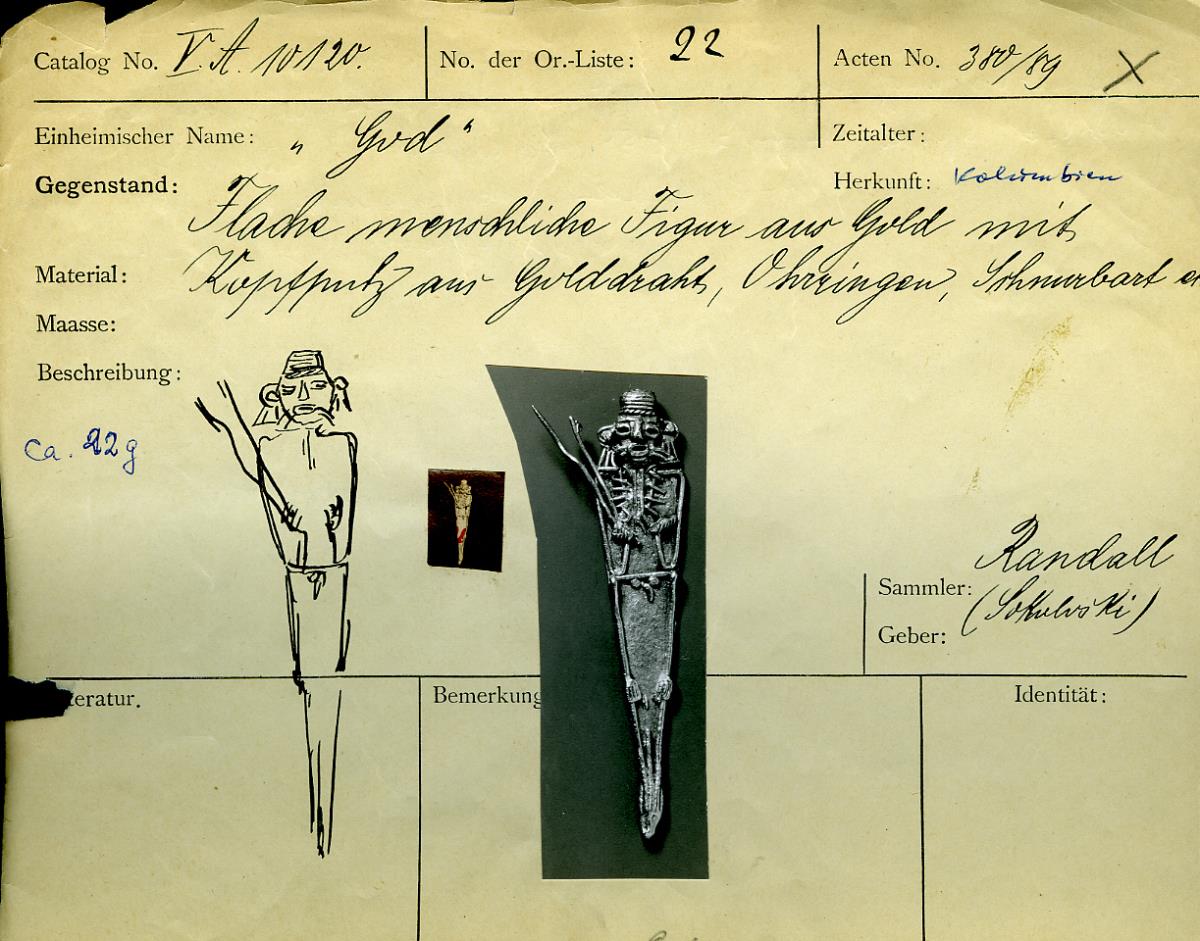 Catalog No. V. A. 10120. No. der Or.-Liste: 22 Acten No. 380/89 X
Einheimischer Name: „ God “ Zeitalter:
Gegenstand: Herkunft: Kolumbien
Flache menschliche Figur aus Gold mit
Material: Kopfputz aus Golddraht, Ohrringen, Schnurbart
Maasse:
Beschreibung:
ca. 22g
Randall
Sammler:
(Sokoloski)
Geber:
teratur. Bemerkung Identität: